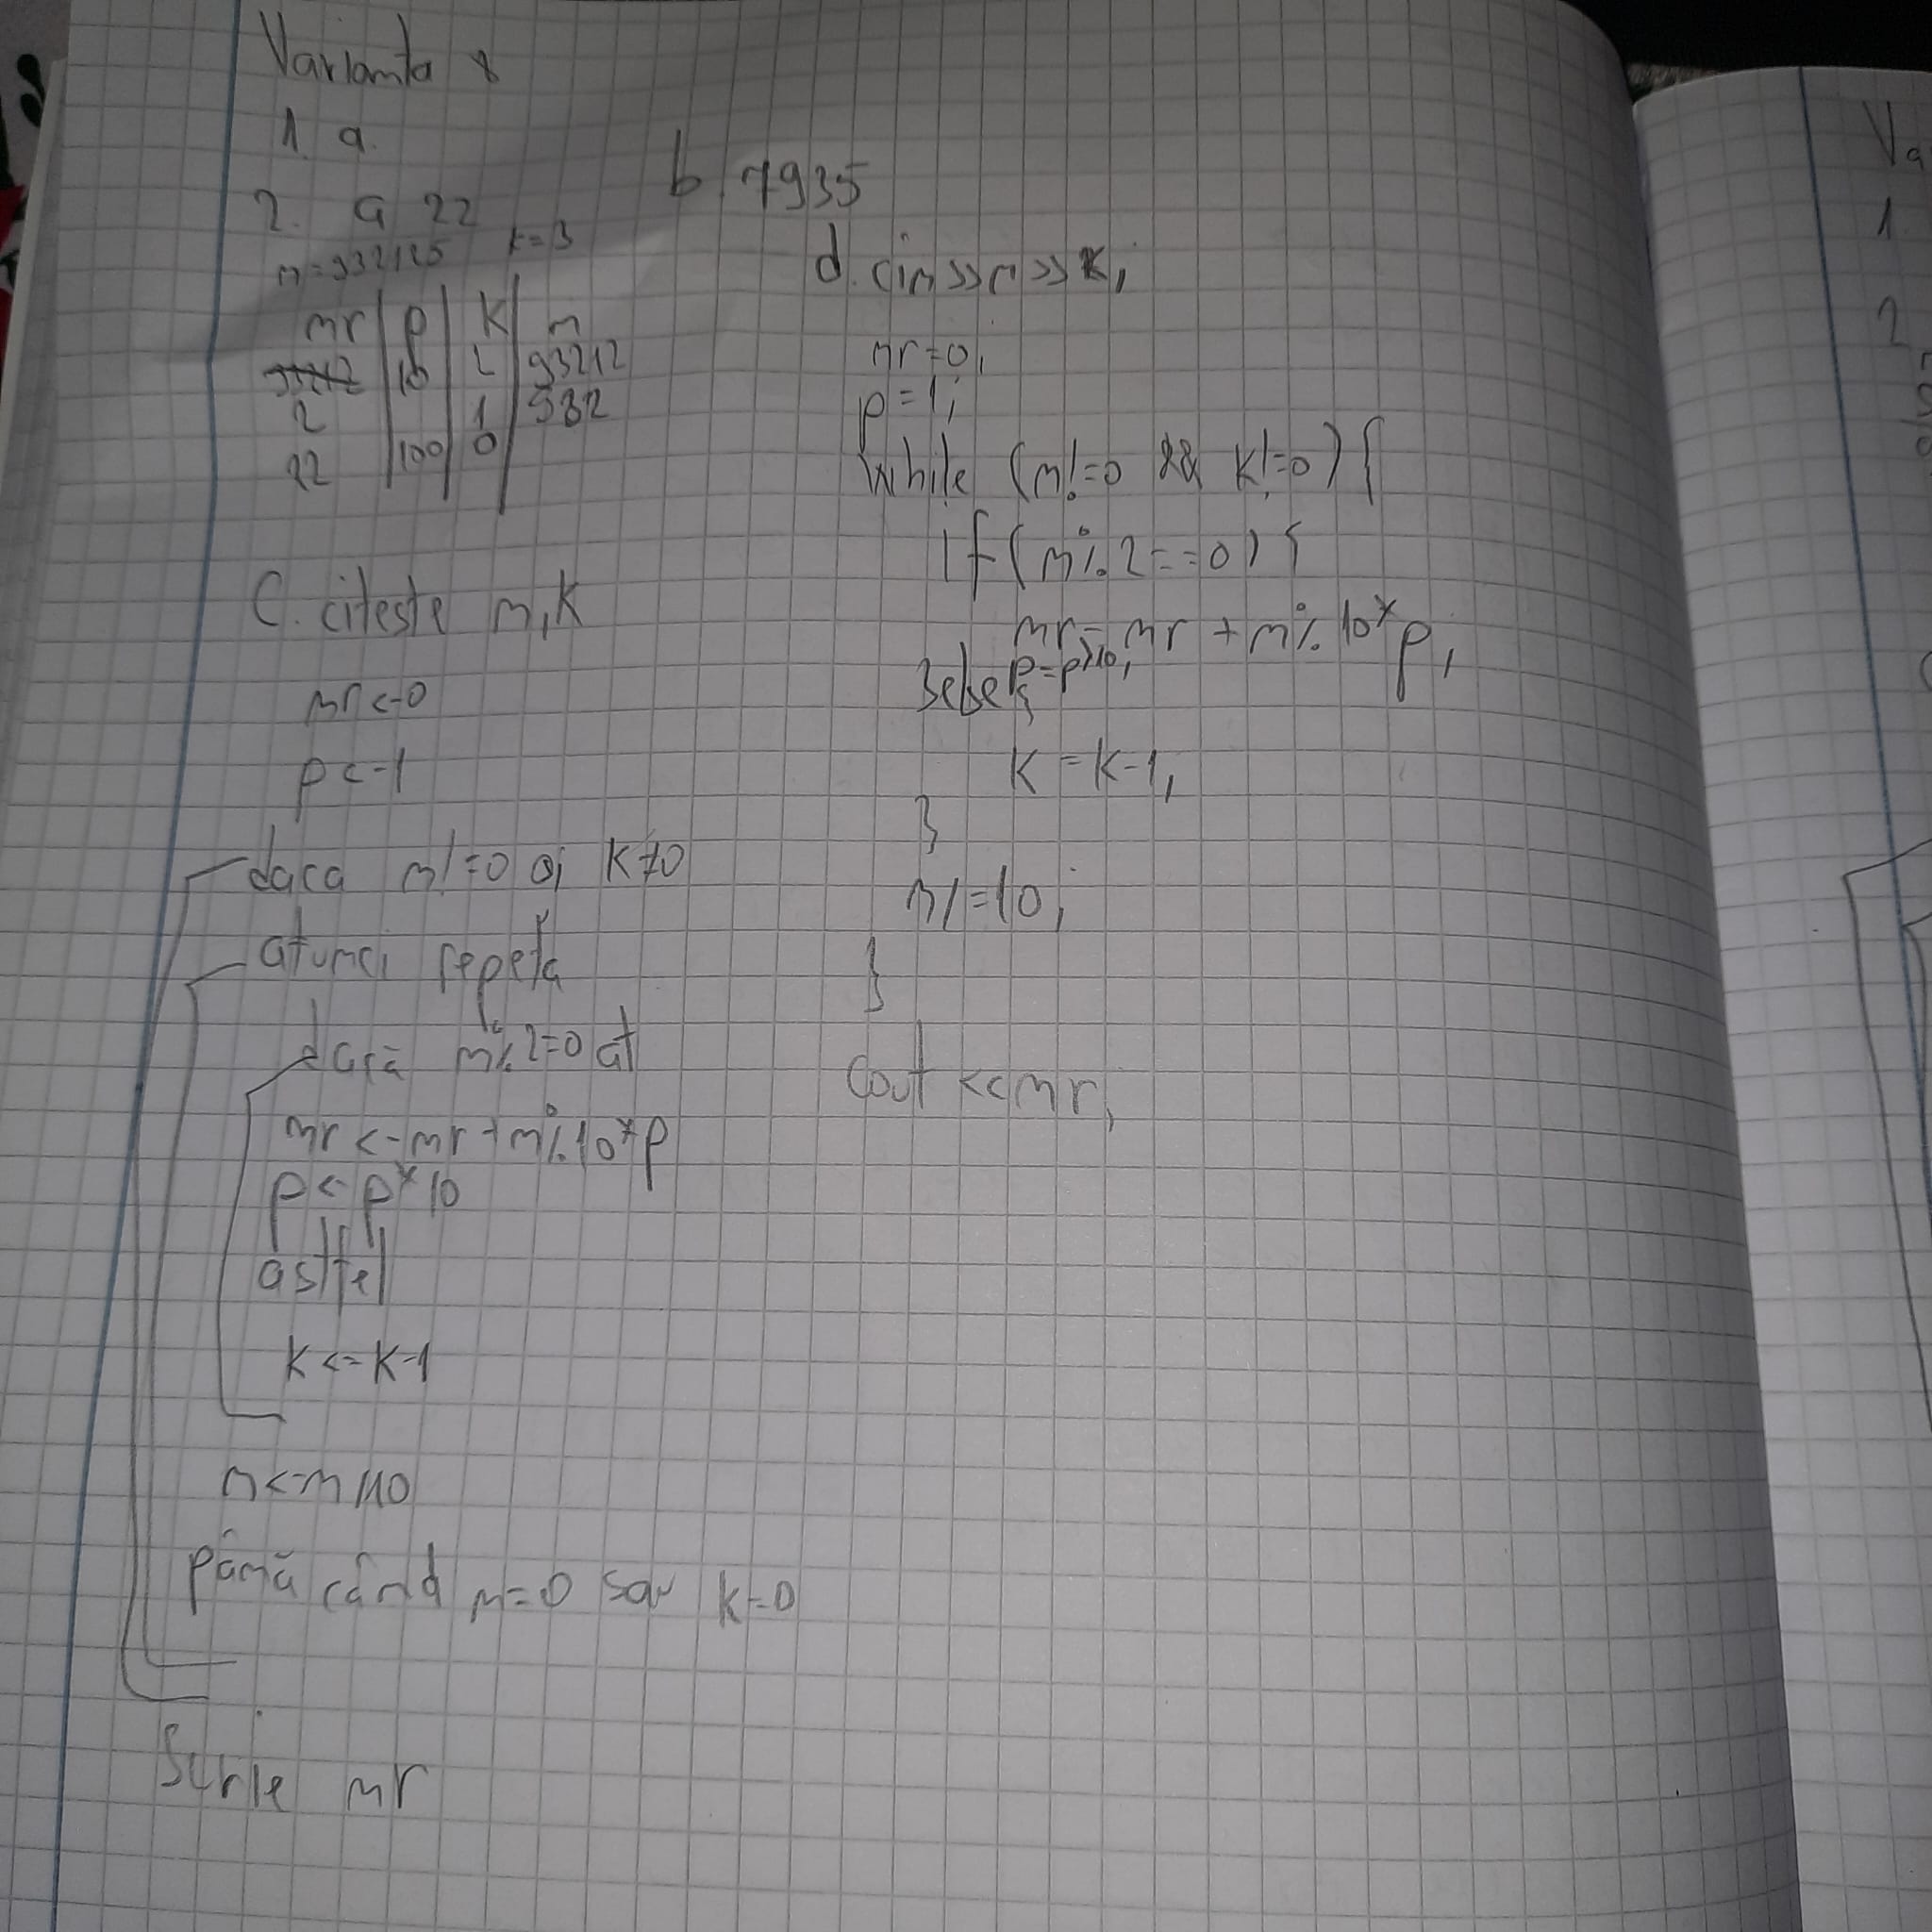 Varianta 8
1. a.
2. a 22
n=932125 k=3
nr p k n
10 2 93212
2 1 932
22 100 0
C. citeste n,k
nr<-0
p<-1
daca n!=0 si k≠0
atunci repetă
dacă n%2=0 at
nr<-nr+n%10*p
p<-p*10
astfel
k<=k-1
n<-n/10
până când n=0 sau k=0
Scrie nr
b. 7935
d. cin>>n>>k;
nr=0;
p=1;
while (n!=0 && k!=0){
if(n%2==0){
nr=nr+n%10*p;
p=p*10;
}else{
k=k-1;
}
n/=10;
}
cout<<nr;
Va
1.
2